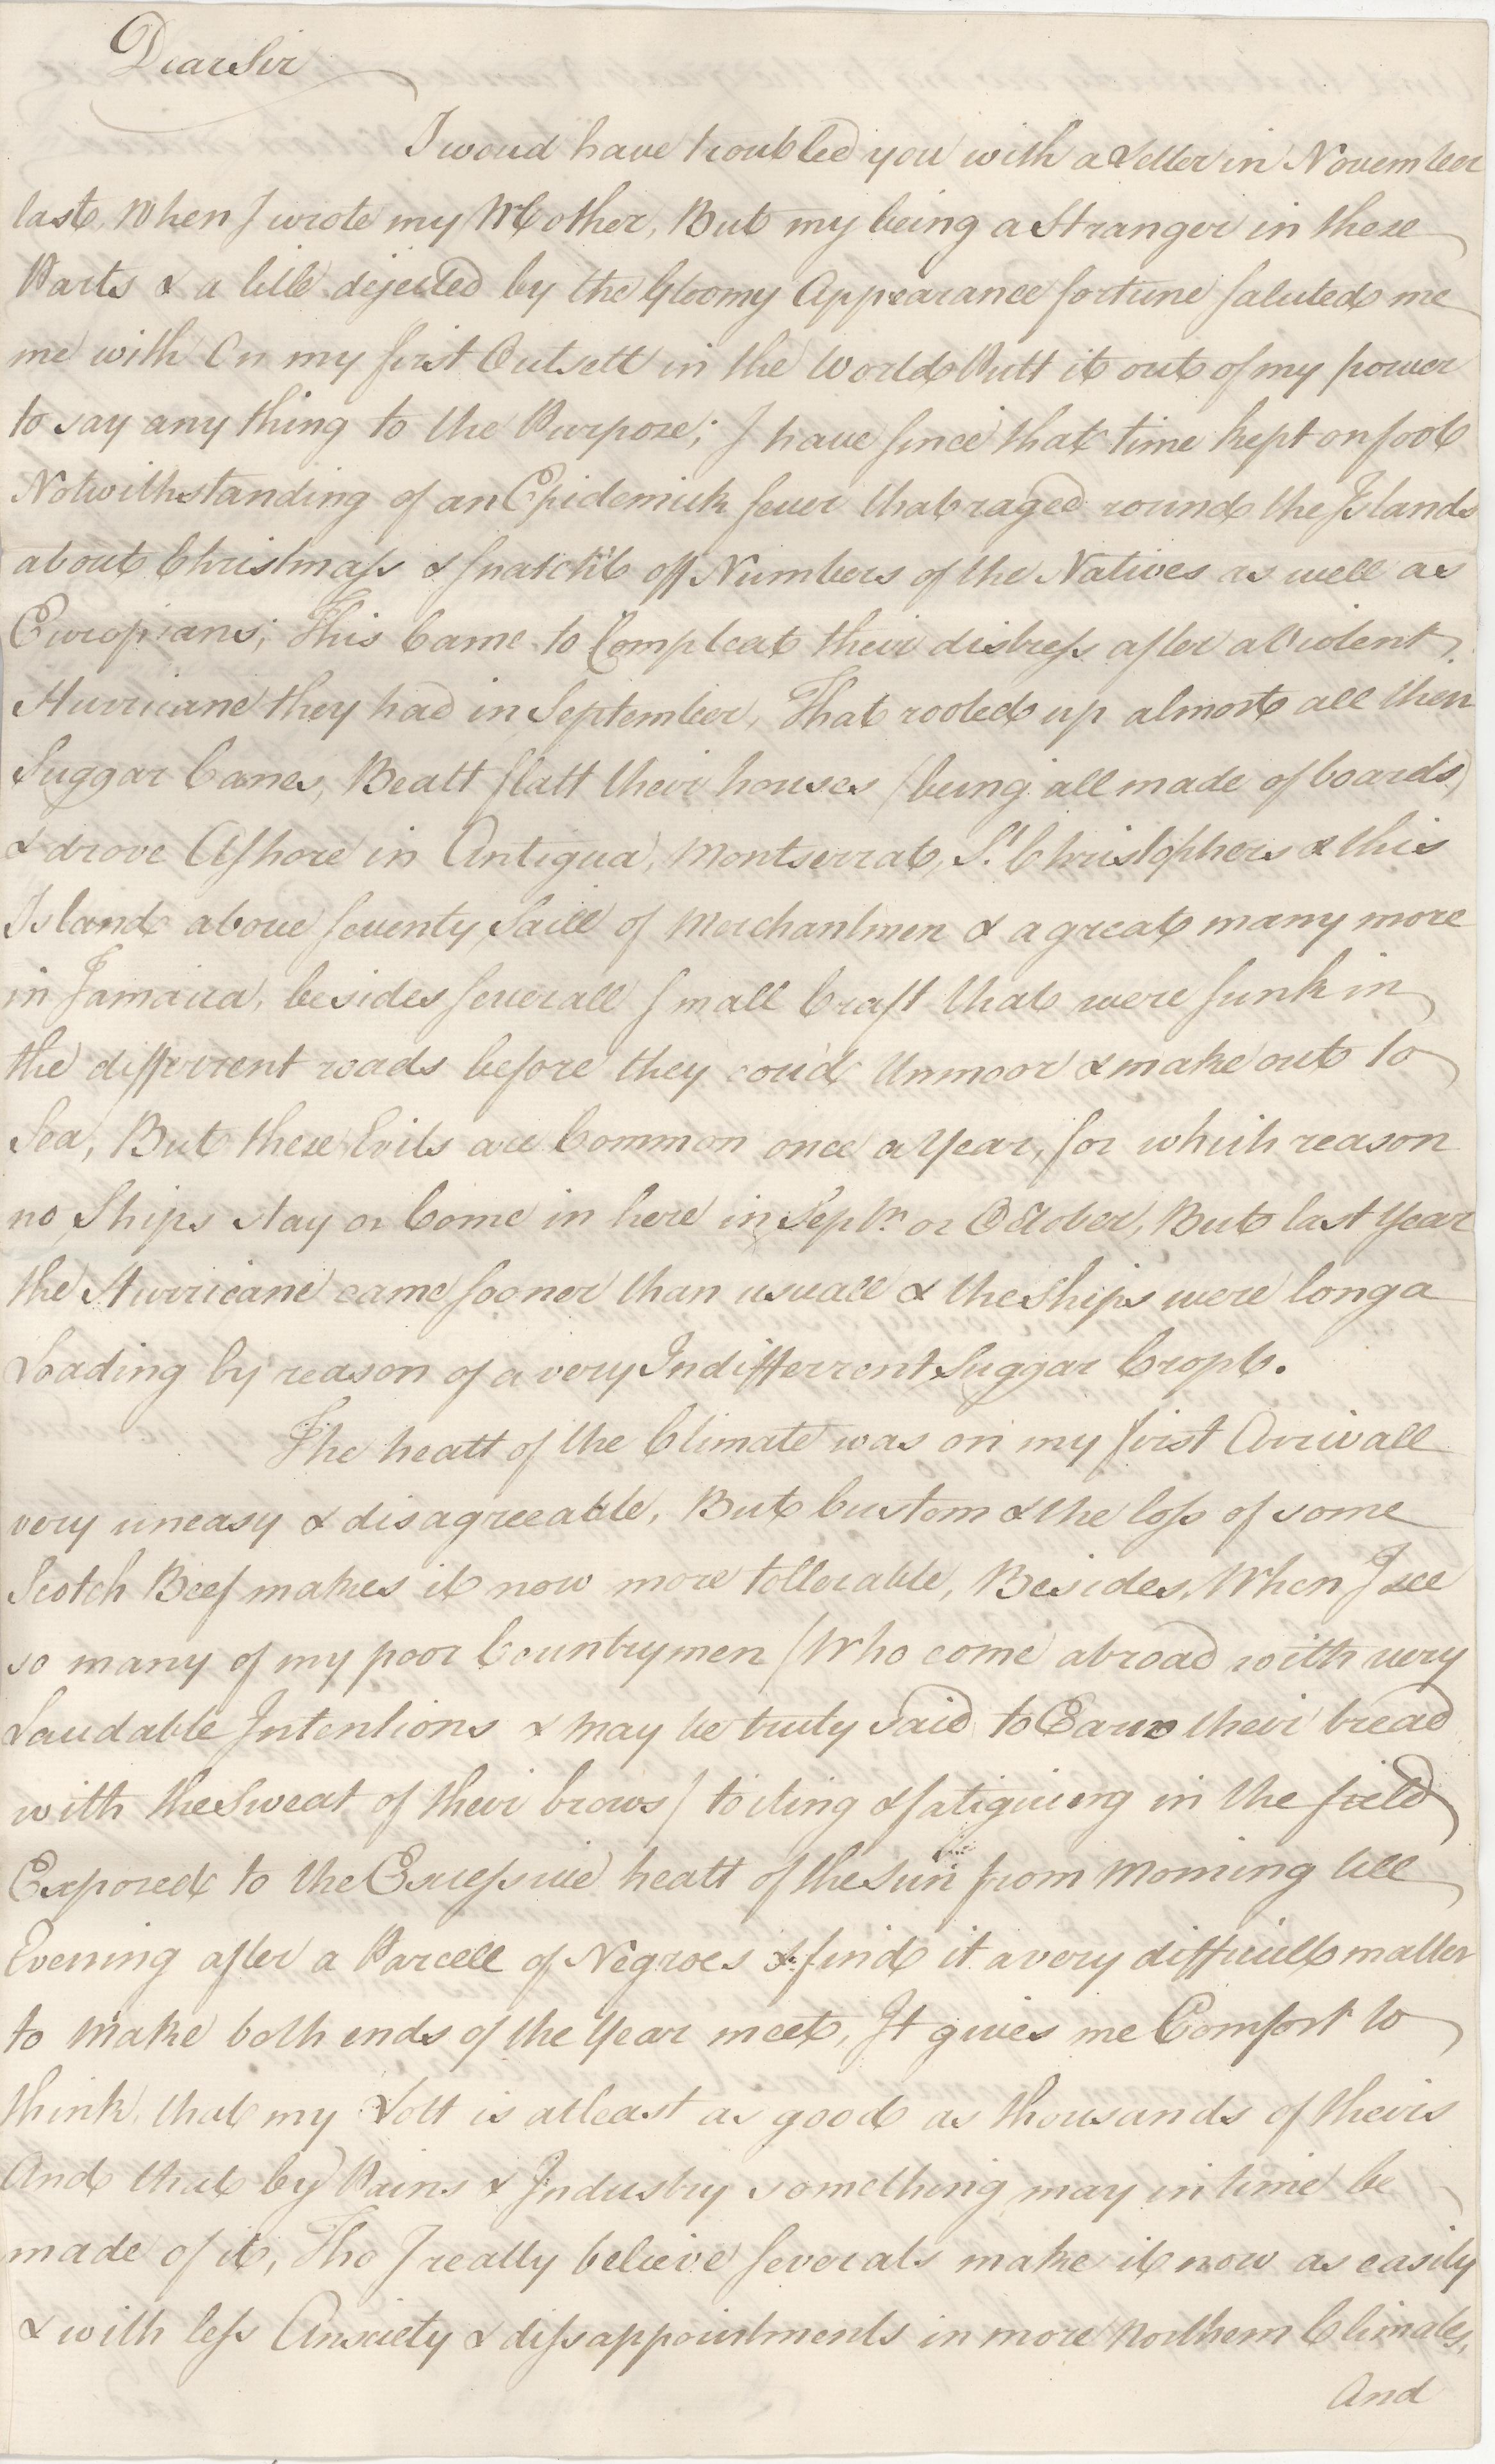 Dear Sir
I woud have troubled you with a Letter in November
last, When I wrote my Mother, But my being a Stranger in these
Parts & a litle dejected by the Gloomy Appearance fortune saluted me
me with On my first Outsett in the World Putt it out of my power
to say any thing to the Purpose; I have since that time kept on foot
Notwithstanding of an Epidemick fever that raged round the Islands
about Christmass & snatch't off Numbers of the Natives as well as
Europians; This Came to Compleat their distress after a Violent
Hurricane they had in September, That rooted up almost all their
Suggar Canes, Beatt flatt their houses (being all made of boards)
& drove Ashore in Antigua, Montserrat, St. Christophers & this
Island above seventy Saill of Merchantmen & a great many more
in Jamaica, besides severall small Craft that were sunk in
the differrent roads before they coud Unmoor & make out to
Sea, But these Evils are Common once a Year, for which reason
no Ships stay or Come in here in Septr. or October, But last Year
the Hurricane came sooner than usuall & the Ships were long a
Loading by reason of a very Indifferrent Suggar Cropt.
The heatt of the Climate was on my first Arrivall
very uneasy & disagreeable, But Custom & the loss of some
Scotch Beef makes it now more tollerable, Besides, When I see
so many of my poor Countrymen (Who come abroad with very
Laudable Intentions & may be truly said to Earn their bread
with the Sweat of their brows) toiling & fatiguing in the field
Exposed to the Excessive heatt of the Sun from Morning till
Evening after a Parcell of Negroes & find it a very difficult matter
to make both ends of the Year meet, It gives me Comfort to
think, that my Lott is at least as good as thousands of theirs
And that by Pains & Industry something may in time be
made of it, Tho I really believe severals make it now as easily
& with less Anxiety & dissappointments in more Northern Climates,
And